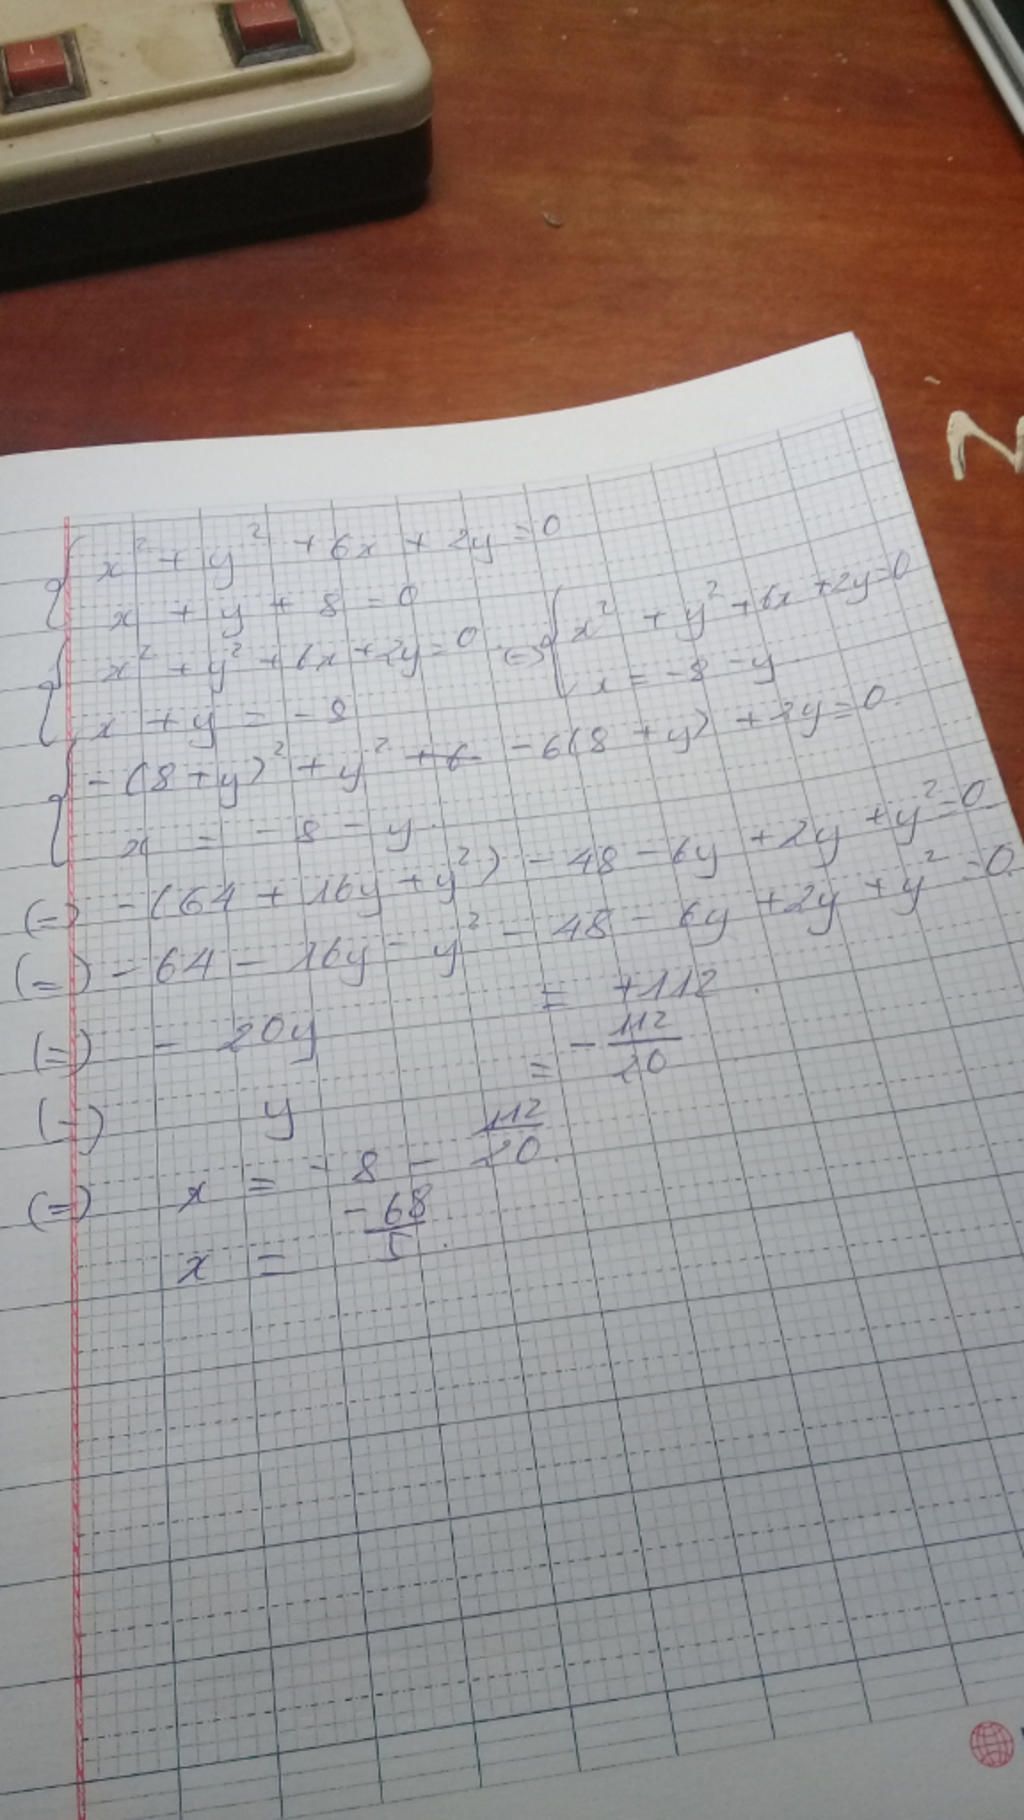 x² + y² + 6x + 2y = 0
x + y + 8 = 0
x² + y² + 6x + 2y = 0 <=> x² + y² + 6x + 2y = 0
x + y = -8 x = -8 - y
-(8 + y)² + y² + 6 - 6(8 + y) + 2y = 0
x = -8 - y
(=) -(64 + 16y + y²) - 48 - 6y + 2y + y² = 0
(=) - 64 - 16y - y² - 48 - 6y + 2y + y² = 0
(=) - 20y = +112
(-) y = - 112/20
(=) x = - 8 - 112/20
x = -68/5